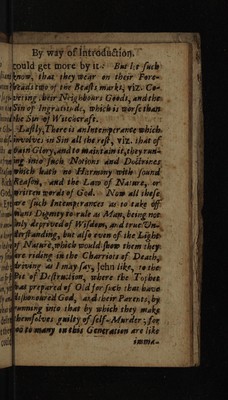 By way of Introduction.
could get more by it. But let such
know, that they wear on their Fore-
heads two of the Beasts marks, viz. Co-
vering their Neighbours Goods, and the
Sin of Ingratitude, which is worse than
the Sin of Witchcraft.
Lastly, There is an Intemperance which
involves in Sin all the rest, viz. that of
vain Glory, and to maintain it, they run-
ing into such Notions and Doctrines
which hath no Harmony with sound
Reason, and the Law of Nature, or
written word of God. Now all these
are such Intemperances as to take off
mans Dignity to rule as Man, being not
only deprived of Wisdom, and true Un-
derstanding, but also even of the Light
of Nature, which would shew them they
are riding in the Chariots of Death,
driving as I may say, Jehu like, to the
Pit of Destruction, where the Tophet
was prepared of Old for such that have
dishonoured God, and their Parents, by
running into that by which they make
themselves guilty of self-Murder; for
as to many in this Generation are like
imma-